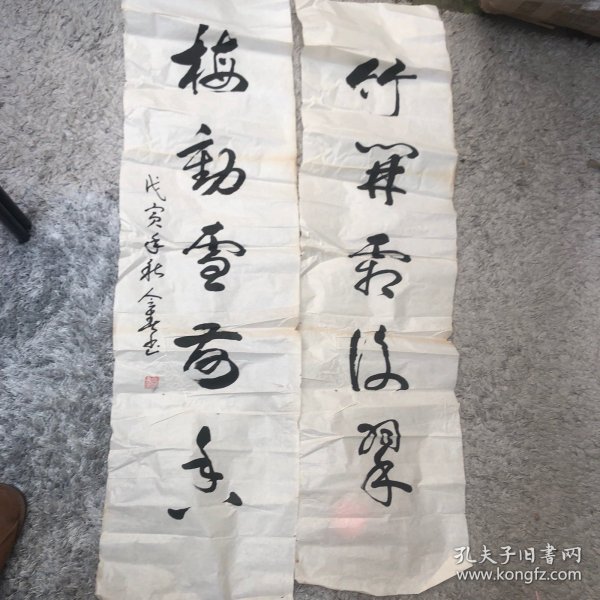 竹開霜後翠
梅動雪前香
戊寅年秋金春书
孔夫子旧書网
www.kongfz.com